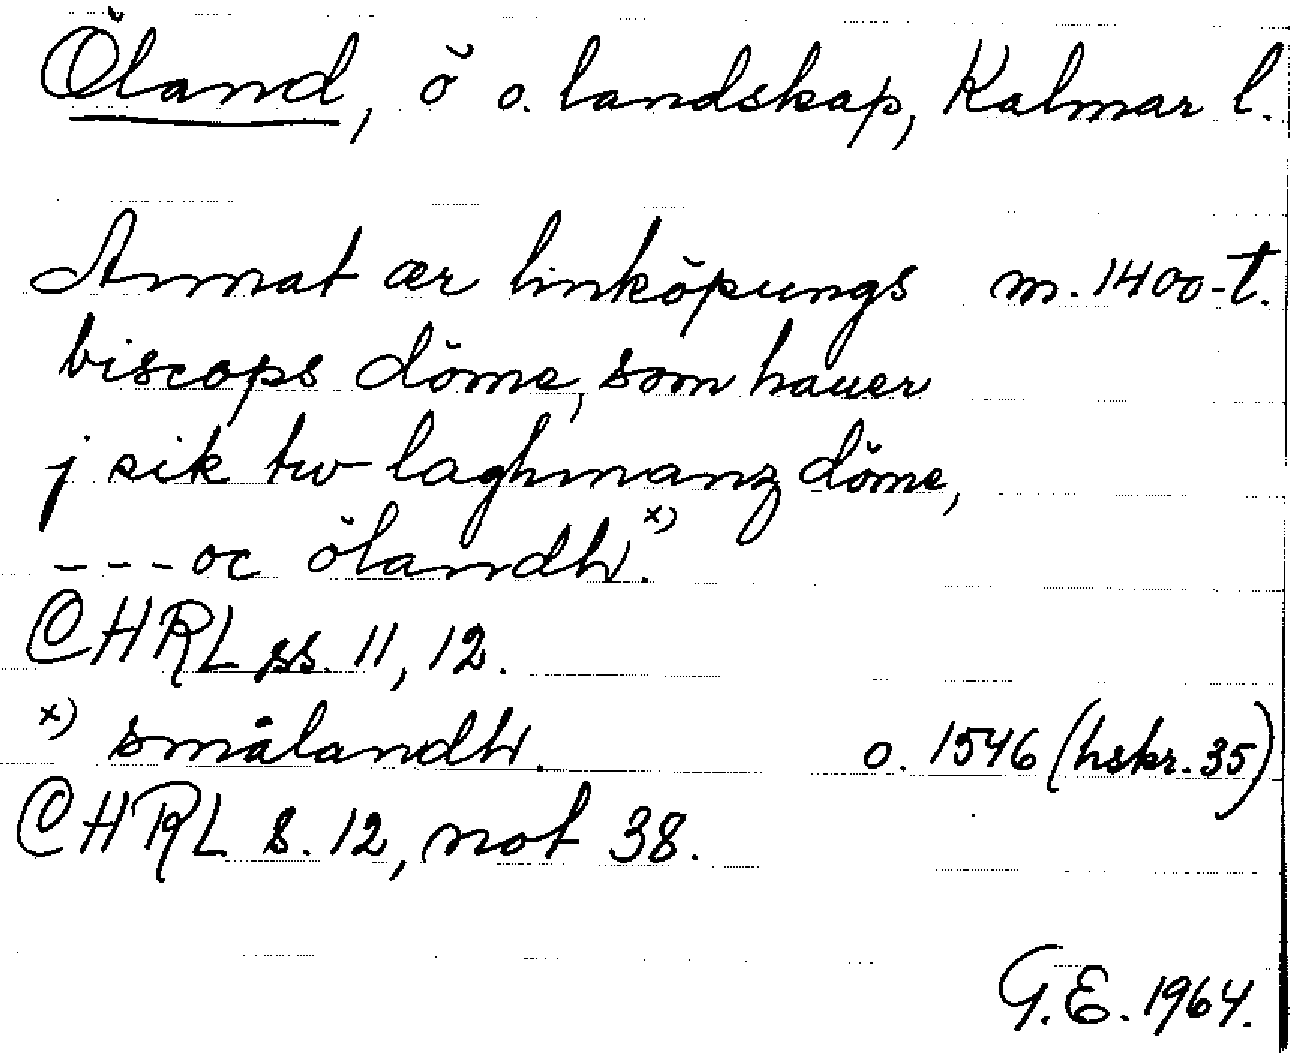 Öland, ö o. landskap, Kalmar l.
Annat ær linköpungs m. 1400-t.
biscops döme, som hauer
j sik tw laghmanz döme,
--- oc ölandh.x)
CHRL ss. 11, 12.
x) smålandh. o. 1546 (hskr. 35)
CHRL s. 12, not 38.
G.E. 1964.